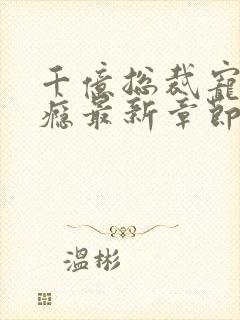 千亿总裁宠
瘾最新章节
温彬